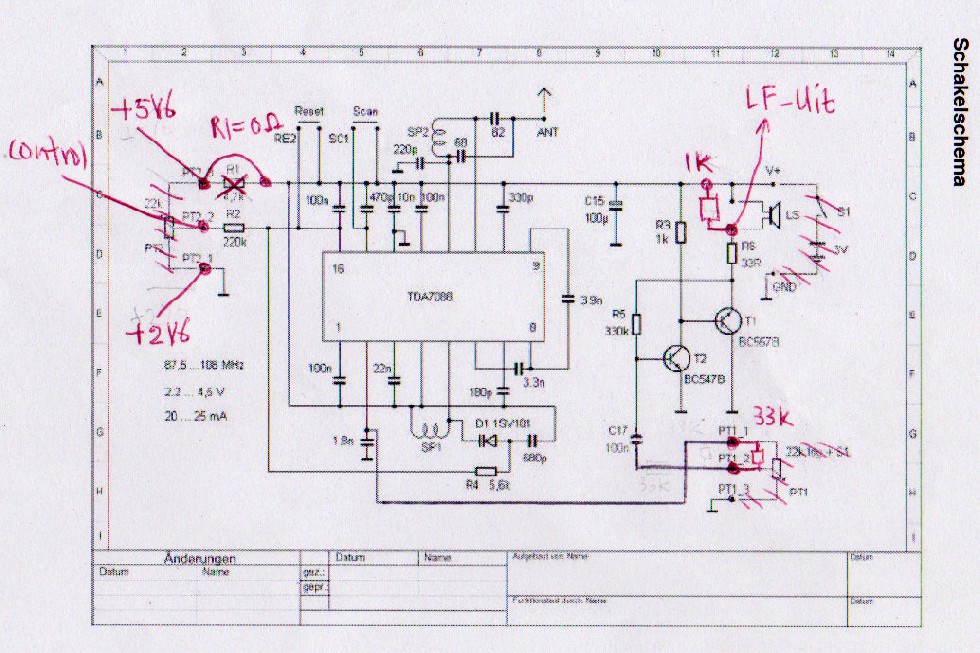 Schakelschema
1 2 3 4 5 6 7 8 9 10 11 12 13 14
A A
B B
C C
D D
E E
F F
G G
H H
I I
+5V6
R1=0Ω
Control
LF-Uit
1K
+2V6
33K
Reset
Scan
RE2
SC1
SP2
82
ANT
220p
68
R1
PT2_2
R2
220k
22k
PT2_1
100n
470p
10n
100n
330p
C15
100µ
R3
1k
V+
LS
S1
3V
R6
33R
GND
16
9
TDA7088
1
8
3.9n
R5
330k
T1
BC557B
T2
BC547B
87,5...108 MHz
2.2... 4,5 V
20 ... 25 mA
100n
22n
180p
3.3n
1.8n
SP1
D1 1SV101
680p
R4 5,6k
C17
100n
33K
PT1_1
PT1_2
PT1_3
PT1
Änderungen
Datum
Name
Datum
Name
gez.:
gepr.:
Aufgebaut von: Name
Datum
Funktionstest durch: Name
Datum